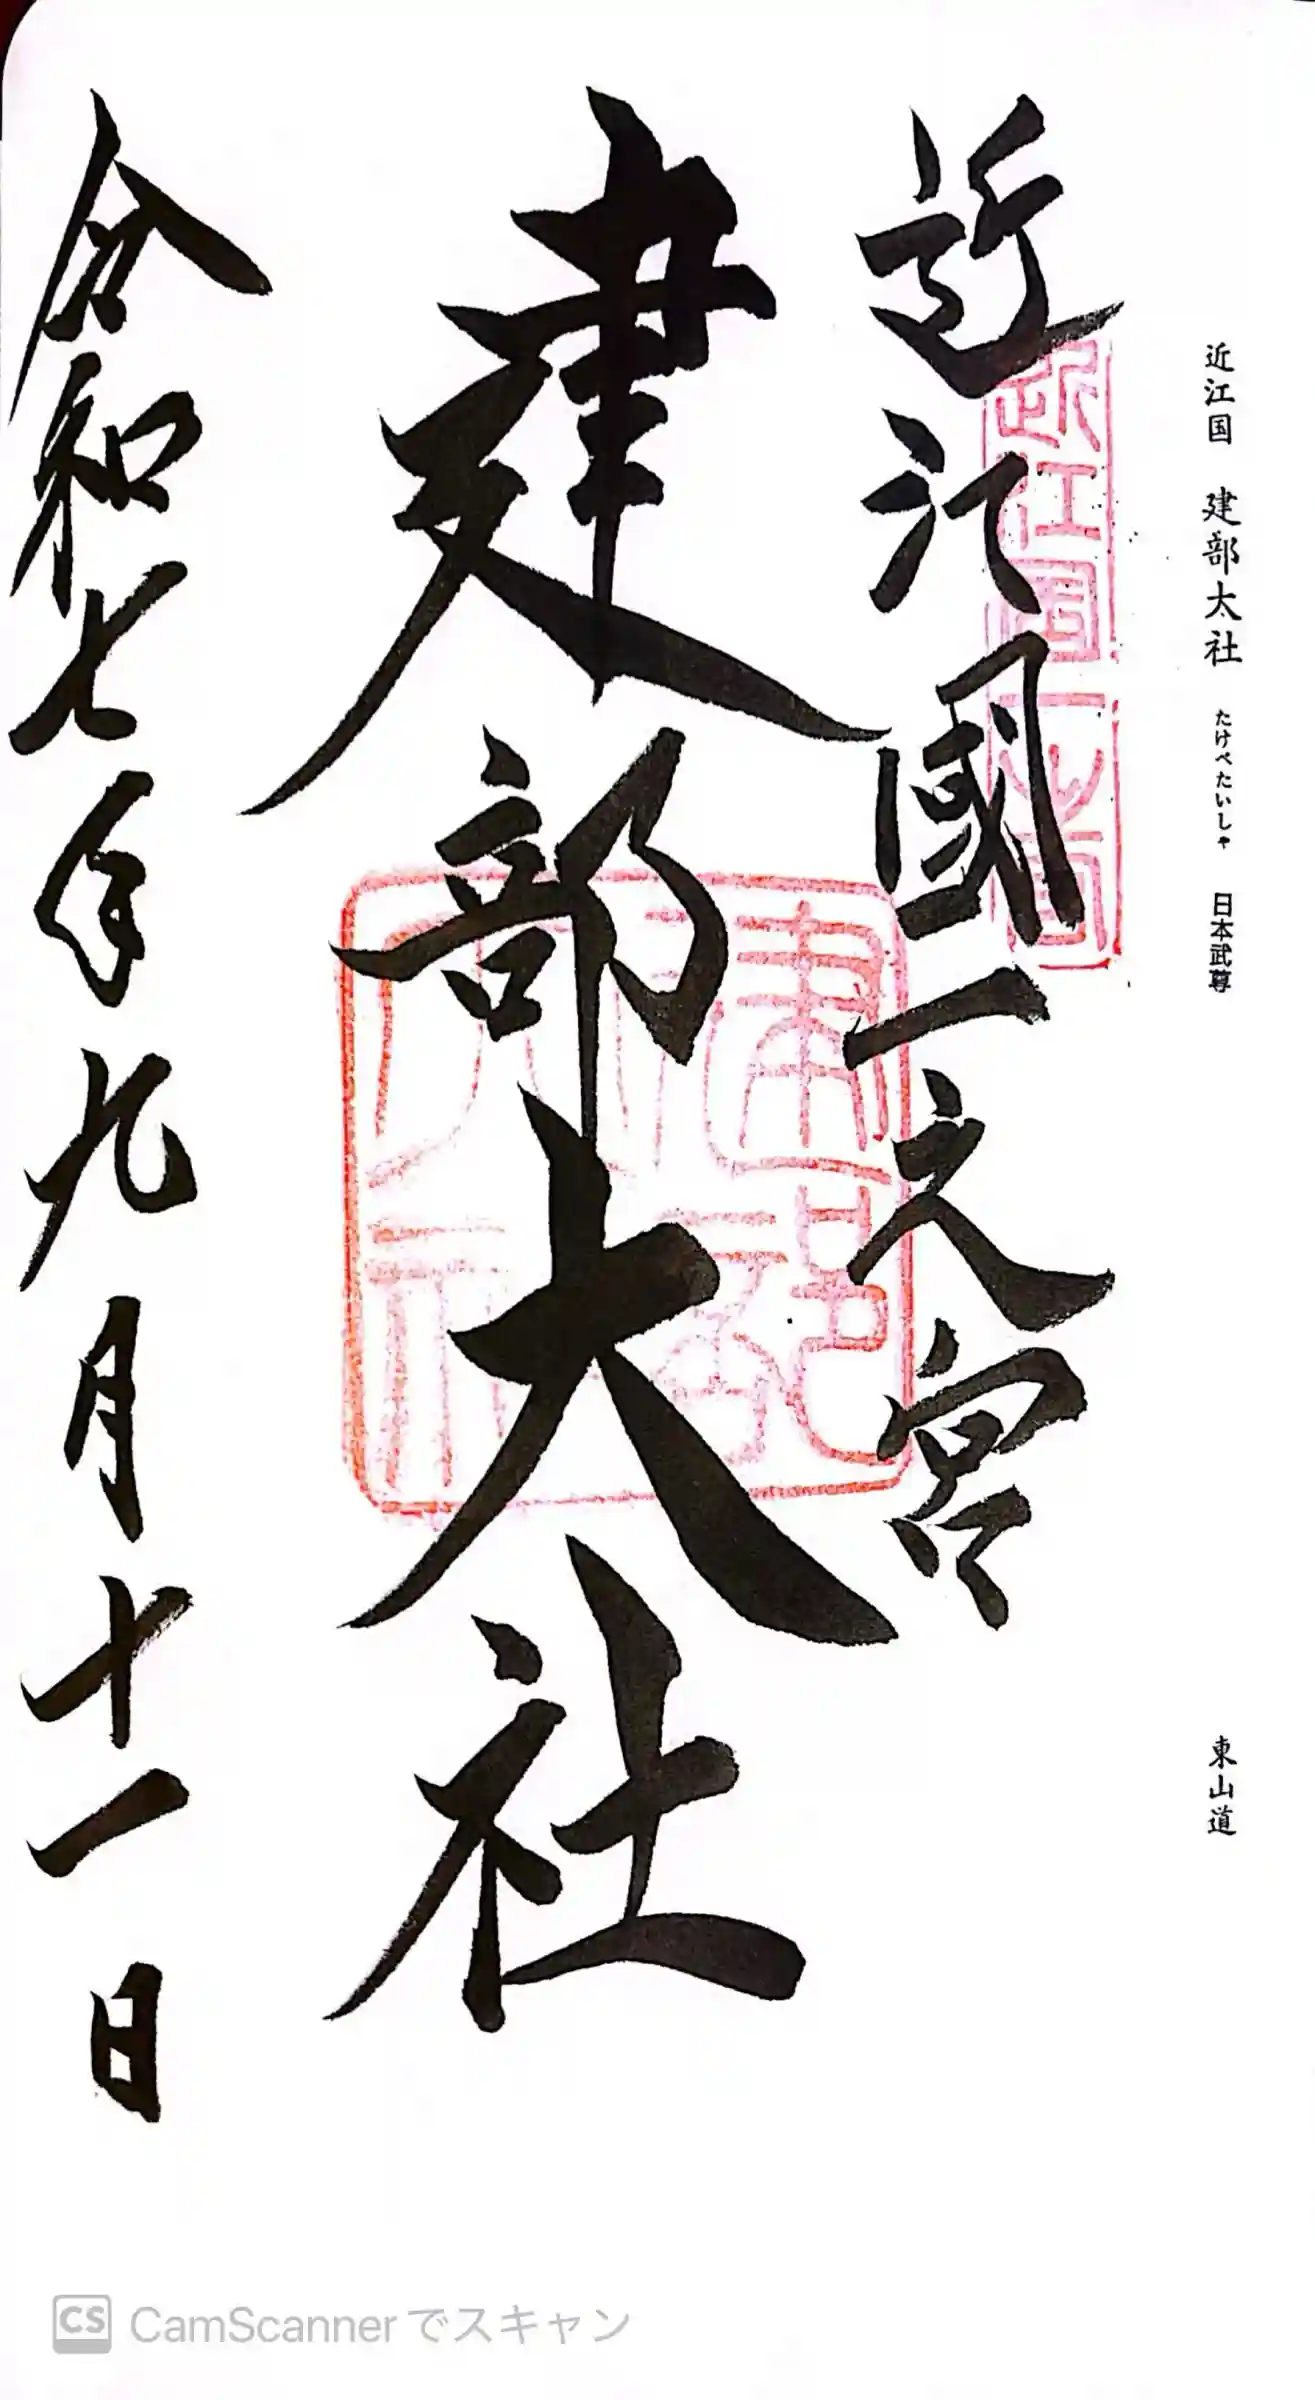 近江国 建部大社 たけべたいしゃ 日本武尊 東山道
近江國一之宮
近江国一之宮
建部大社
令和七年九月十一日
CS CamScannerでスキャン